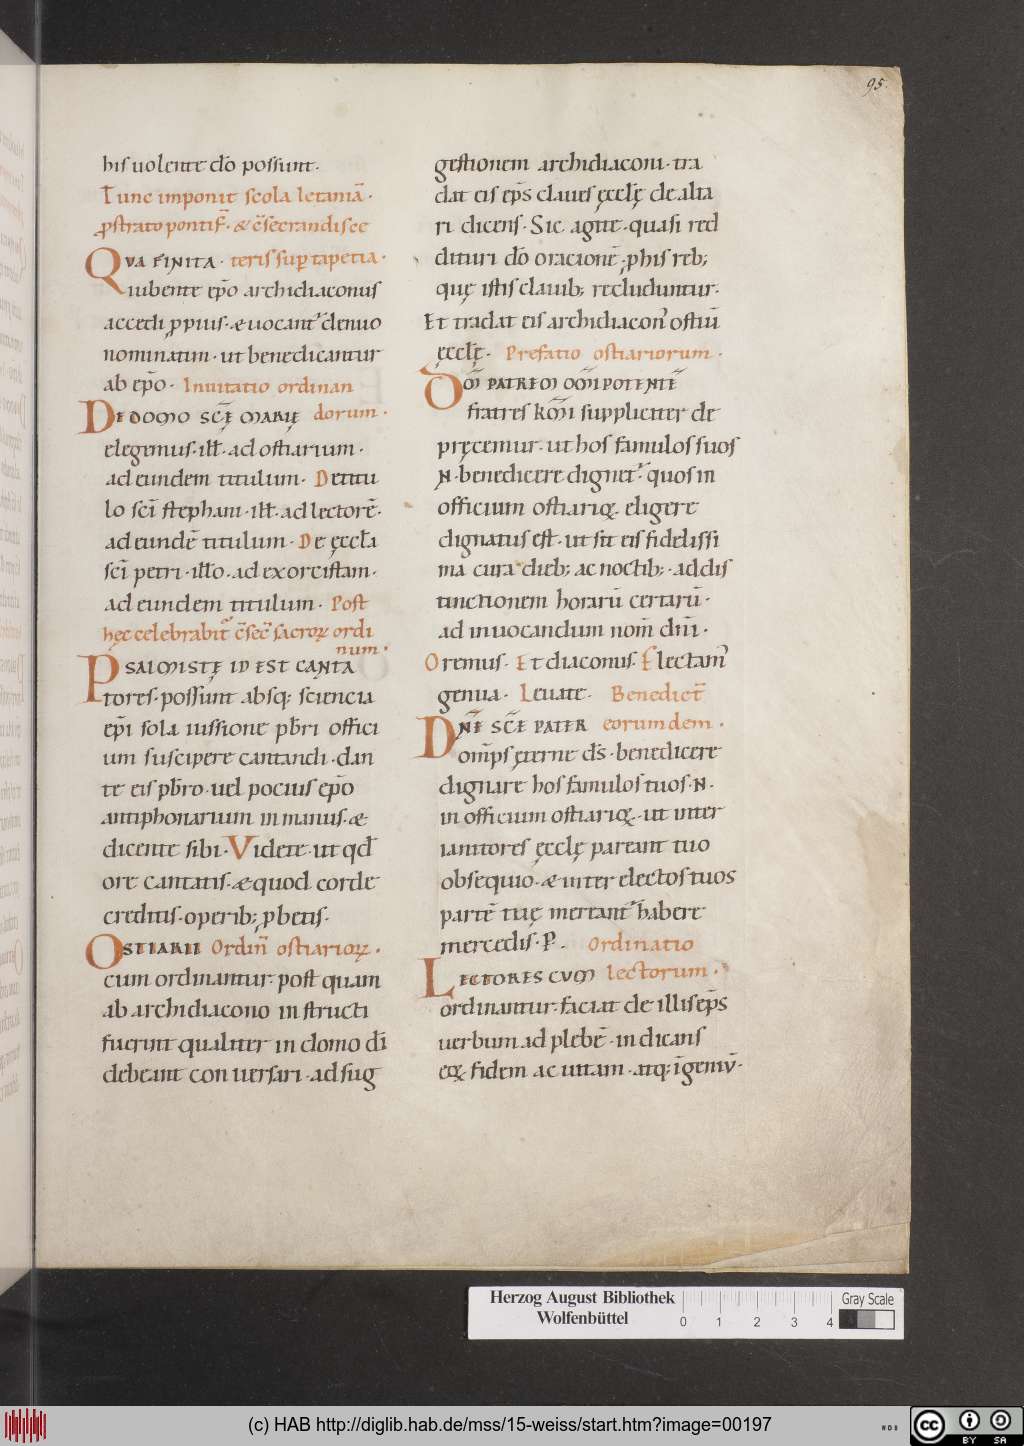 95.
his uolente dō possunt.
Tunc imponit scola letaniā.
ꝓstrato pontif̄. & c̄secrandis ec
QVA FINITA. teris sup tapetia.
iubente ep̄o archidiaconus
accedi ꝓpius. & uocant᷑ denuo
nominatim. ut benedicantur
ab ep̄o. Inuitatio ordinan
DE DOMO SCĘ̄ MARIĘ dorum.
elegimus. ill̄. ad ostiarium.
ad eundem titulum. De titu
lo sc̄i stephani. ill̄. ad lectorē.
ad eundē titulum. De ęccl̄a
sc̄i petri. ill̄o. ad exorcistam.
ad eundem titulum. Post
hęc celebrabit᷑ c̄sec̄ sacroꝝ ordi
num.
PSALMISTĘ ID EST CANTA
tores. possunt absq; sciencia
ep̄i sola iussione pb̄ri offici
um suscipere cantandi. dan
te eis pb̄ro. uel pocius ep̄o
antiphonarium in manus. &
dicente sibi. Videte. ut qd̄
ore cantatis. & quod corde
creditis. operib; ꝓbetis.
OSTIARII Ordin̄ ostiarioꝝ.
cum ordinantur. post quam
ab archidiacono instructi
fuerint qualiter in domo dī
debeant conuersari. ad sug
gestionem archidiaconi. tra
dat eis ep̄s claues ęcclę̄ de alta
ri dicens. Sic agite. quasi red
dituri dō oracionē, ꝓ his reb;
quę istis clauib; recluduntur.
Et tradat eis archidiacon᷒ ostiū
ęcclę̄. Prefatio ostiariorum.
DM̄ PATREM OM̄IPOTENTĒ
fratres km̄i suppliciter de
pręcemur. ut hos famulos suos
N. benedicere dignet᷑. quos in
officium ostiarioꝝ eligere
dignatus est. ut sit eis fidelissi
ma cura dieb; ac noctib;. ad dis
tinctionem horarū certarū.
ad inuocandum nom̄ dn̄i.
Oremus. Et diaconus. Flectam᷒
genua. Leuate. Benedict̄
DN̄E SC̄E PATER eorumdem.
om̄ps ęterne ds̄. benedicere
dignare hos famulos tuos. N.
in officium ostiarioꝝ. ut inter
ianitores ęcclę̄ pareant tuo
obsequio. & inter electos tuos
partē tuę mereant᷑ habere
mercedis. P̄. Ordinatio
LECTORES CVM lectorum.
ordinantur. faciat de illis ep̄s
uerbum ad plebē. indicans
eoꝝ fidem ac uitam. atq; īgeniū.
Herzog August Bibliothek
Wolfenbüttel
0 1 2 3 4
Gray Scale
(c) HAB http://diglib.hab.de/mss/15-weiss/start.htm?image=00197
WDB
cc BY SA